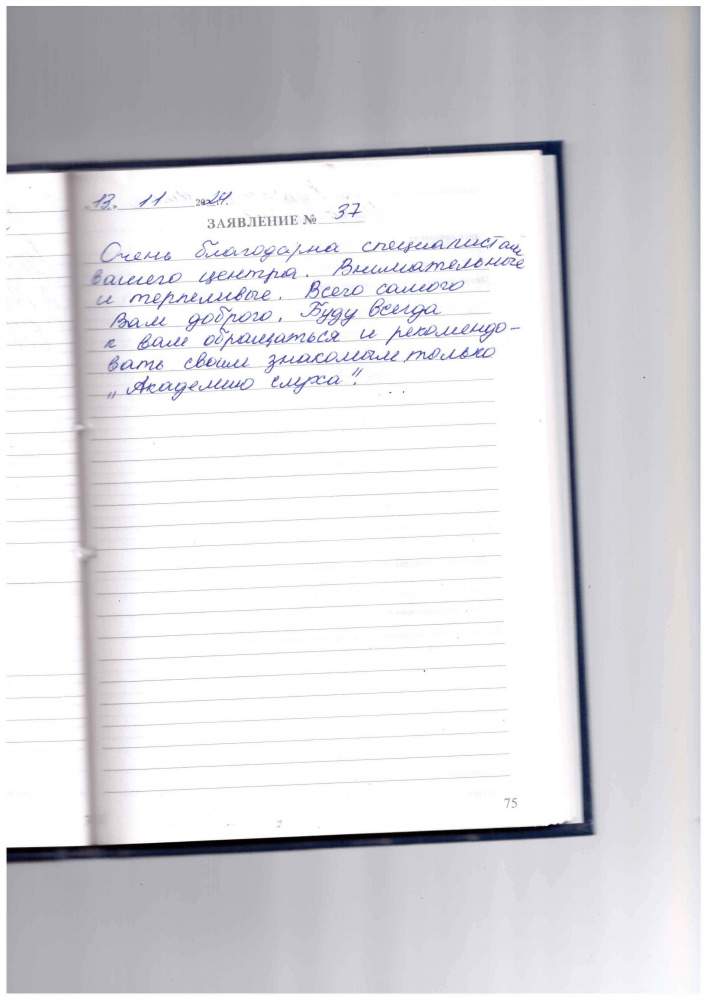 13. 11 2024.
ЗАЯВЛЕНИЕ № 37
Очень благодарна специалистам
вашего центра. Внимательные
и терпеливые. Всего самого
Вам доброго. Буду всегда
к вам обращаться и рекомендо-
вать своим знакомым только
„Академию слуха"!
...
75